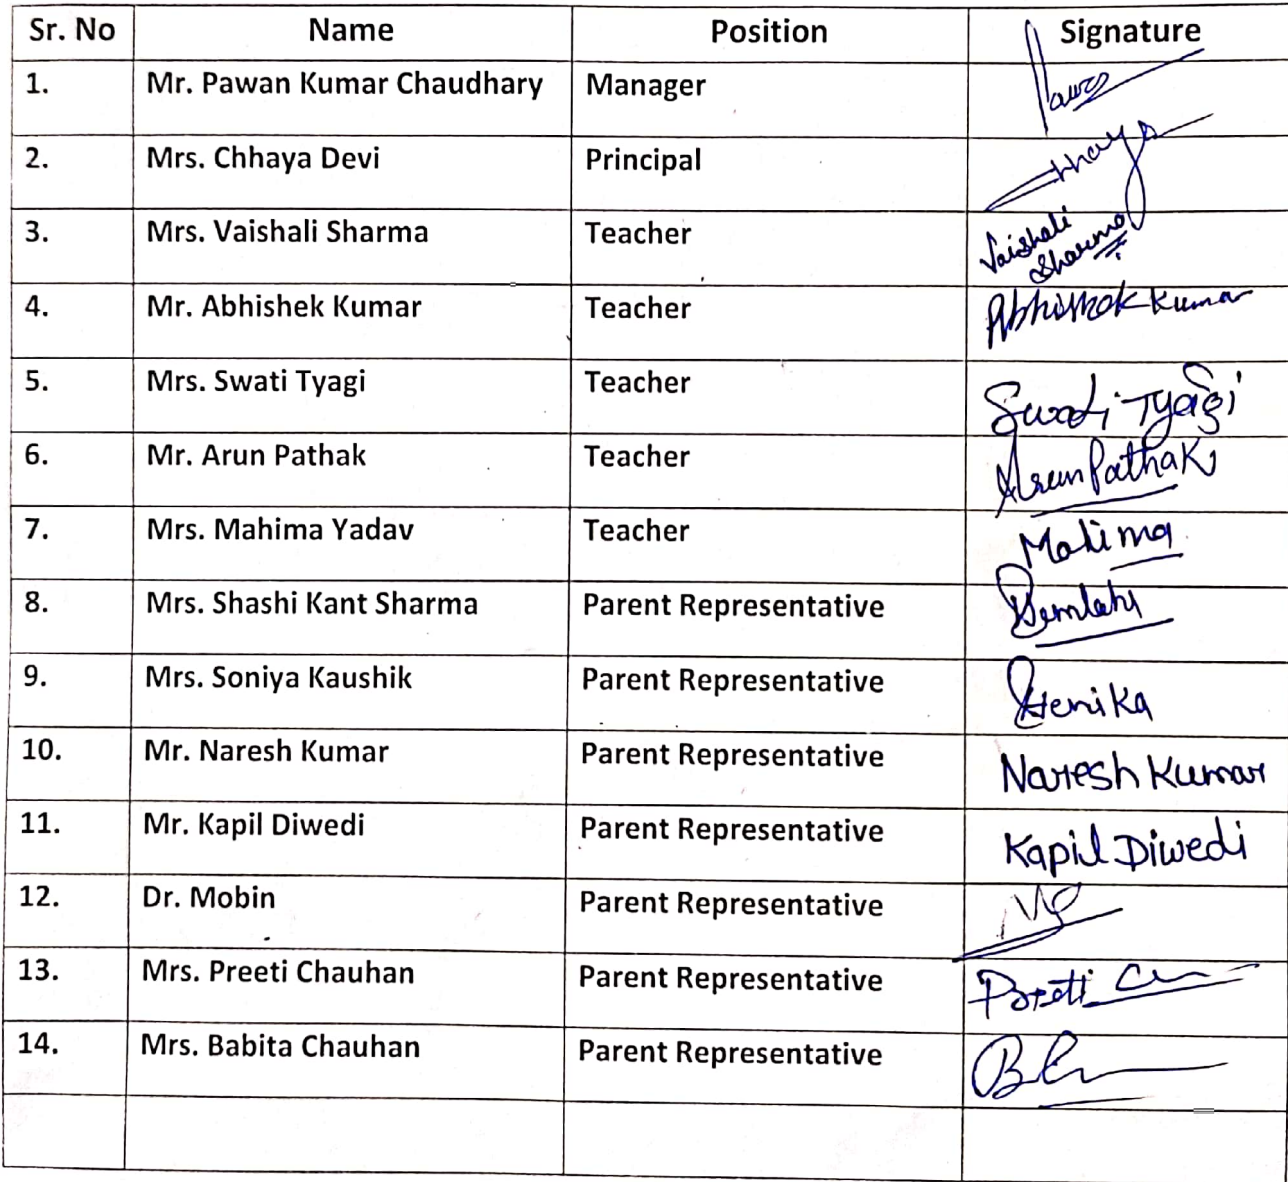 Sr. No Name Position Signature
1. Mr. Pawan Kumar Chaudhary Manager
2. Mrs. Chhaya Devi Principal
3. Mrs. Vaishali Sharma Teacher Vaishali
Sharma
4. Mr. Abhishek Kumar Teacher Abhishek Kumar
5. Mrs. Swati Tyagi Teacher Swati Tyagi
6. Mr. Arun Pathak Teacher Arun Pathak
7. Mrs. Mahima Yadav Teacher Mahima
8. Mrs. Shashi Kant Sharma Parent Representative
9. Mrs. Soniya Kaushik Parent Representative
10. Mr. Naresh Kumar Parent Representative Naresh Kumar
11. Mr. Kapil Diwedi Parent Representative Kapil Diwedi
12. Dr. Mobin Parent Representative
13. Mrs. Preeti Chauhan Parent Representative Preeti
14. Mrs. Babita Chauhan Parent Representative